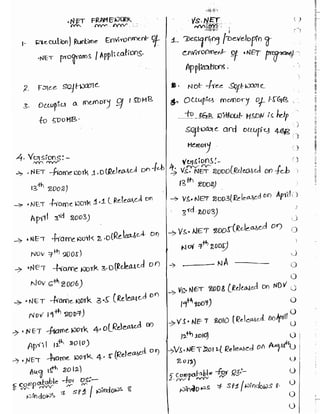 .NET FRAMEWORK
1- Execution| Runtime Environment of
.NET programs / Applications.
2. Free Software.
3. Occupies a memory of 150MB
to 500MB.
4. Versions:-
→ .NET -frame work 1.0(Released on feb
13th 2002)
→ .NET frame work 1.1 (Released on
April 3rd 2003)
→ .NET frame work 2.0(Released on
Nov 7th 2005)
→ .NET frame work 3.0(Released on
Nov 6th 2006)
→ .NET frame work 3.5 (Released on
Nov 19th 2007)
→ .NET frame work 4.0(Released on
April 12th 2010)
→ .NET frame work 4.5(Released on
Aug 2012)
5 Compatable for OS:-
Windows 7 SP1 / Windows 8
VS.NET
1. Designing /Developing of
environment of .NET programs/
Applications.
2. Not free Software.
3. Occupies memory of 1.5GB
to Without MSDN is help
Software and occupies 4GB
Memory
4. Versions:-
→ VS.NET 2000(Released on feb
13th 2002)
→ VS.NET 2003(Released on April
3rd 2003)
→ VS.NET 2005(Released on
Nov 7th 2005)
→ NA
→ VS.NET 2008 (Released on NOV
19th 2007)
→ VS.NET 2010 (Released on April
12th 2010)
→ VS.NET 2012( Released on August
2012)
5 Compatable for OS:-
Windows 7 SP1 /Windows 8